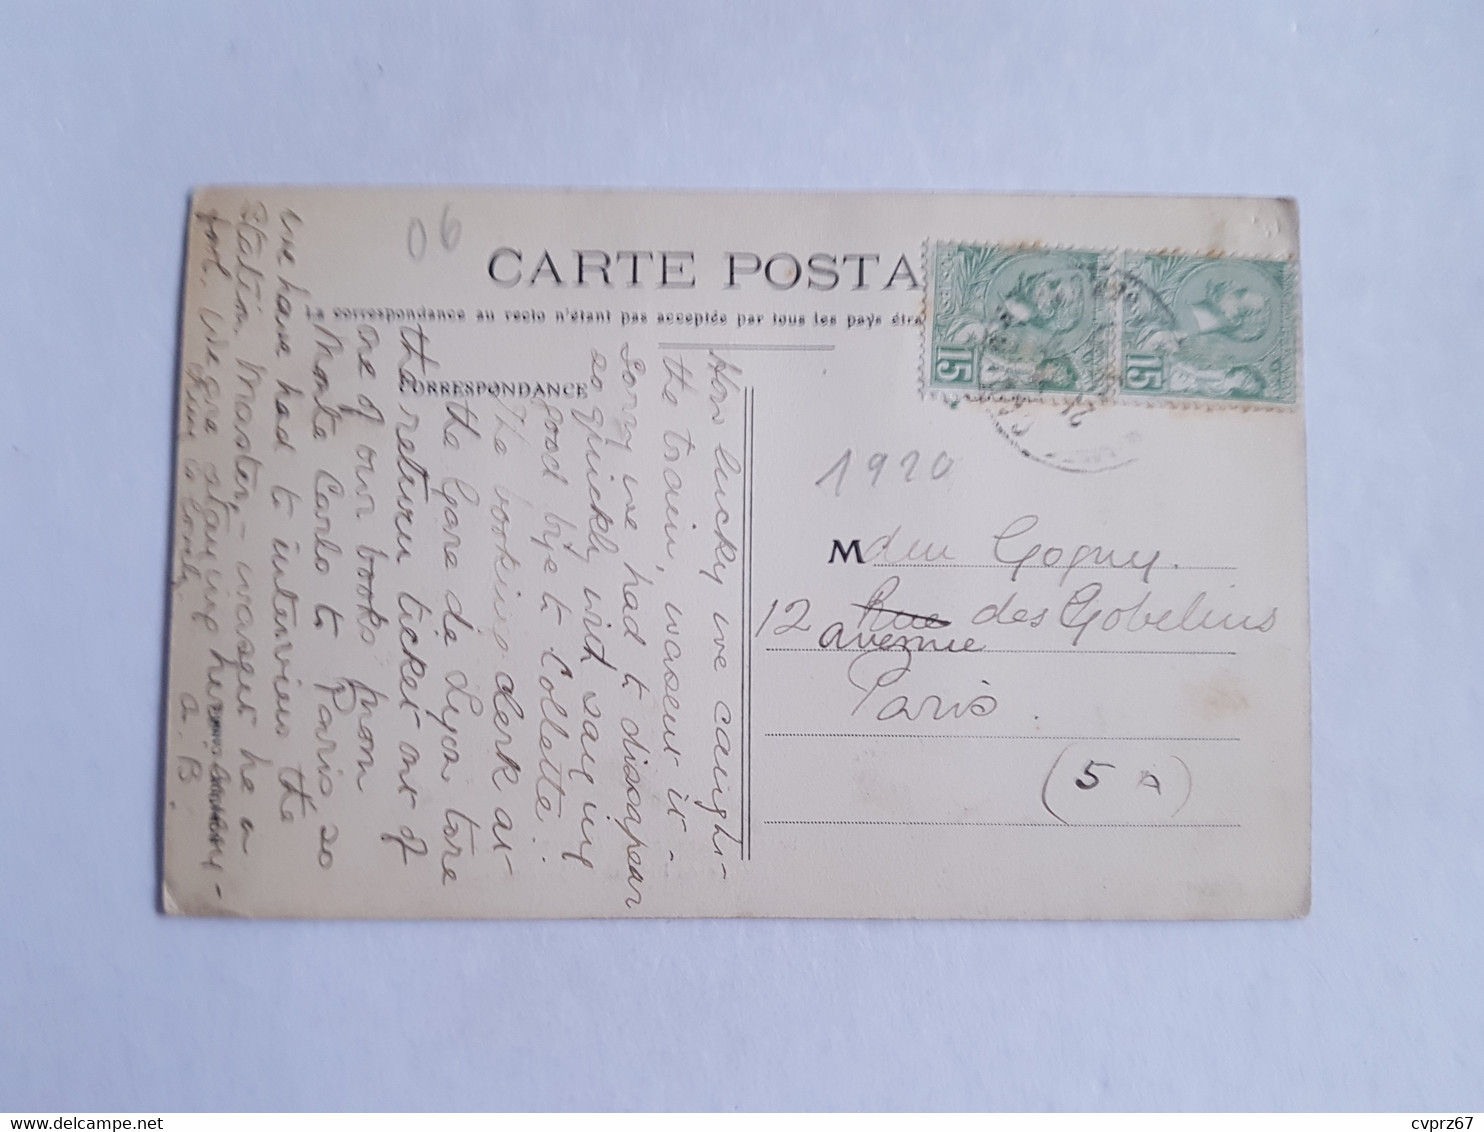 06
CARTE POSTA
La correspondance au recto n'étant pas acceptée par tous les pays étra
CORRESPONDANCE
15
15
1920
M dm Gogny.
12 Rue des Gobelins
avenue
Paris.
(5
How lucky we caught
the train, wasn't it -
sorry we had to disappear
so quickly with saying
good bye to Collette.
The booking clerk at
the Gare de Lyon tore
the return ticket out of
one of our books from
Monte Carlo to Paris so
we have had to interview the
station Master, - wasn't he a
fool. We are staying here
a. B.
delcampe.net
cvprz67